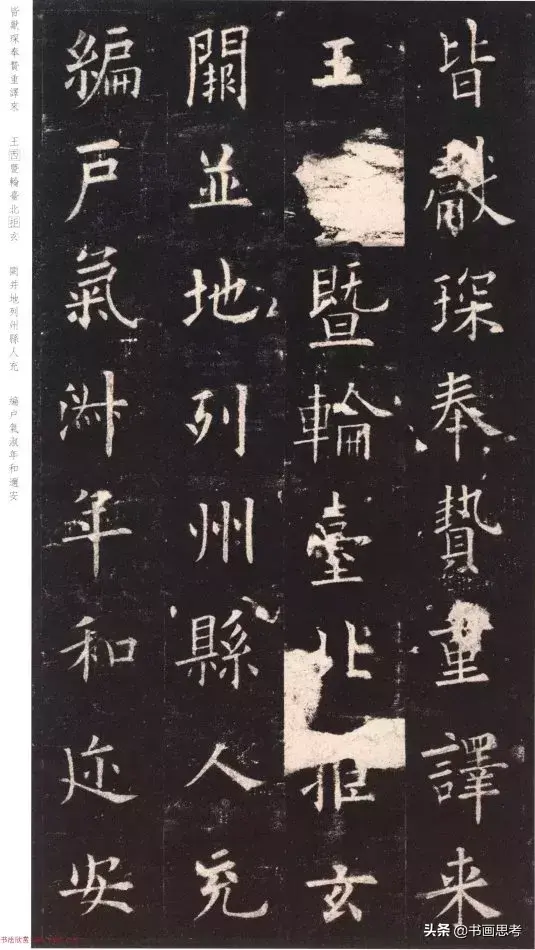 皆獻琛奉贄重譯来
王暨輪臺北拒玄
闕並地列州縣人充
編戶氣淑年和迩安
皆獻琛奉贄重譯來 王西暨輪臺北拒玄 闕并地列州縣人充 編戶氣淑年和邇安
书法欣赏
头条 @书画思考